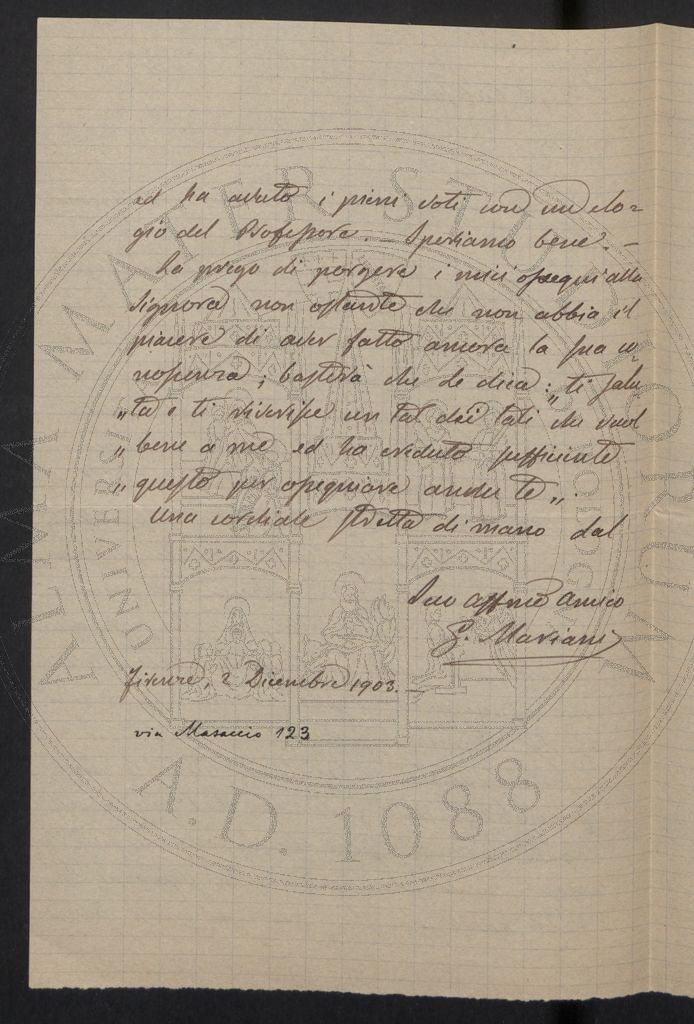 ed ha avuto i pieni voti con un elo=
gio del Professore. — Speriamo bene. —
La prego di porgere i miei ossequi alla
Signora non ostante che non abbia il
piacere di aver fatto ancora la sua co=
noscenza; basterà che Le dica: "ti salu
"ta e ti riverisce un tal dei tali che vuol
"bene a me ed ha creduto sufficiente
"questo per ossequiare anche te".
Una cordiale stretta di mano dal
Suo affmo Amico
G. Mariani
Firenze, 2 Dicembre 1903. —
via Masaccio 123
ALMA MATER STUDIORUM
A.D. 1088